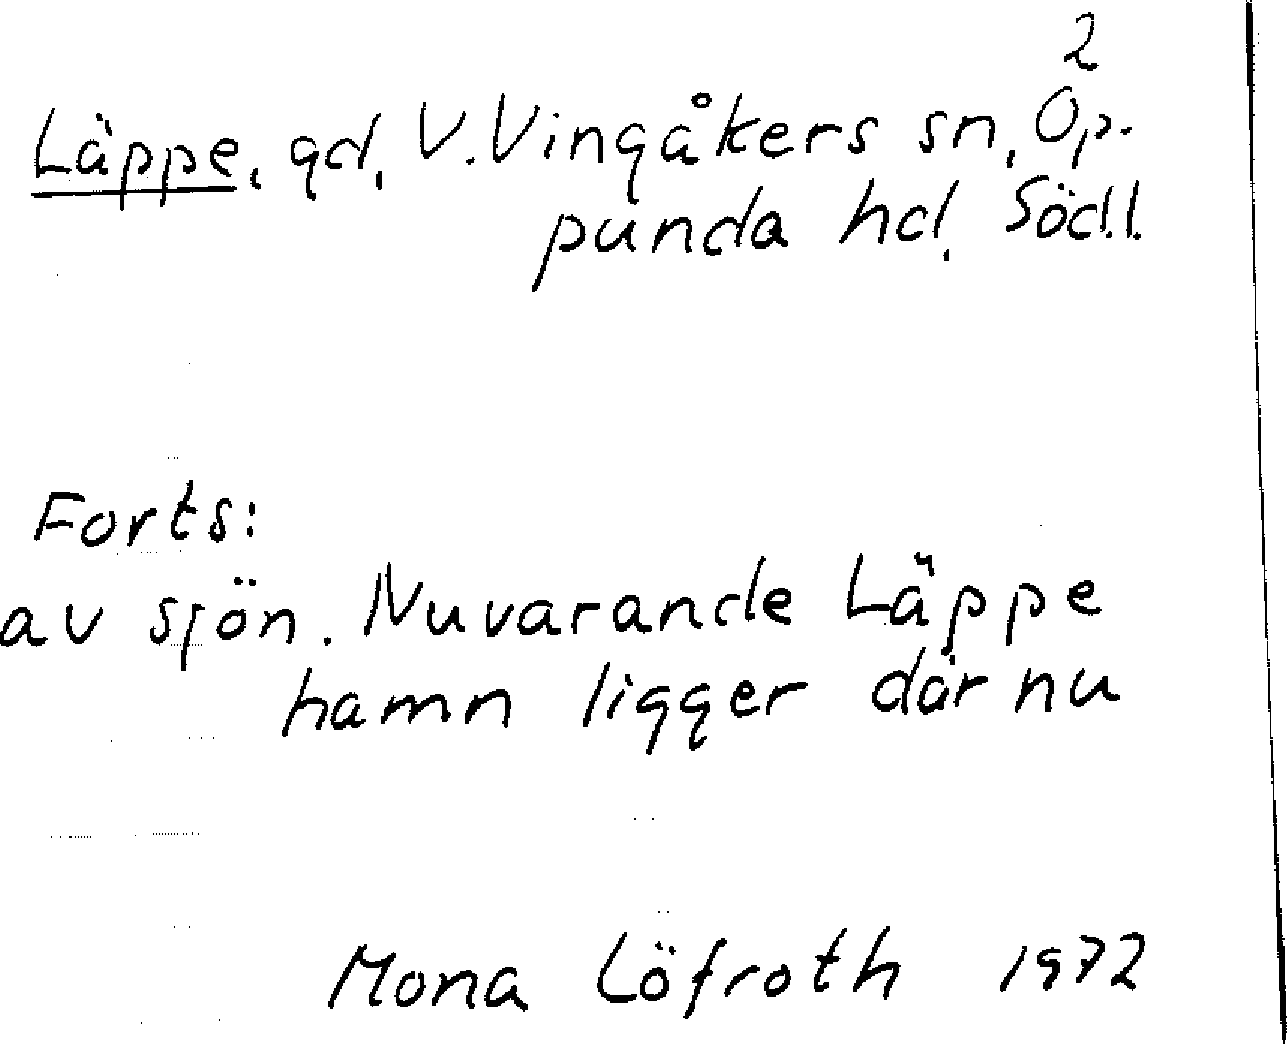 2
Läppe, gd, V. Vingåkers sn, Op-
punda hd, Södl.
Forts:
av sjön. Nuvarande Läppe
hamn ligger där nu
Mona Löfroth 1972